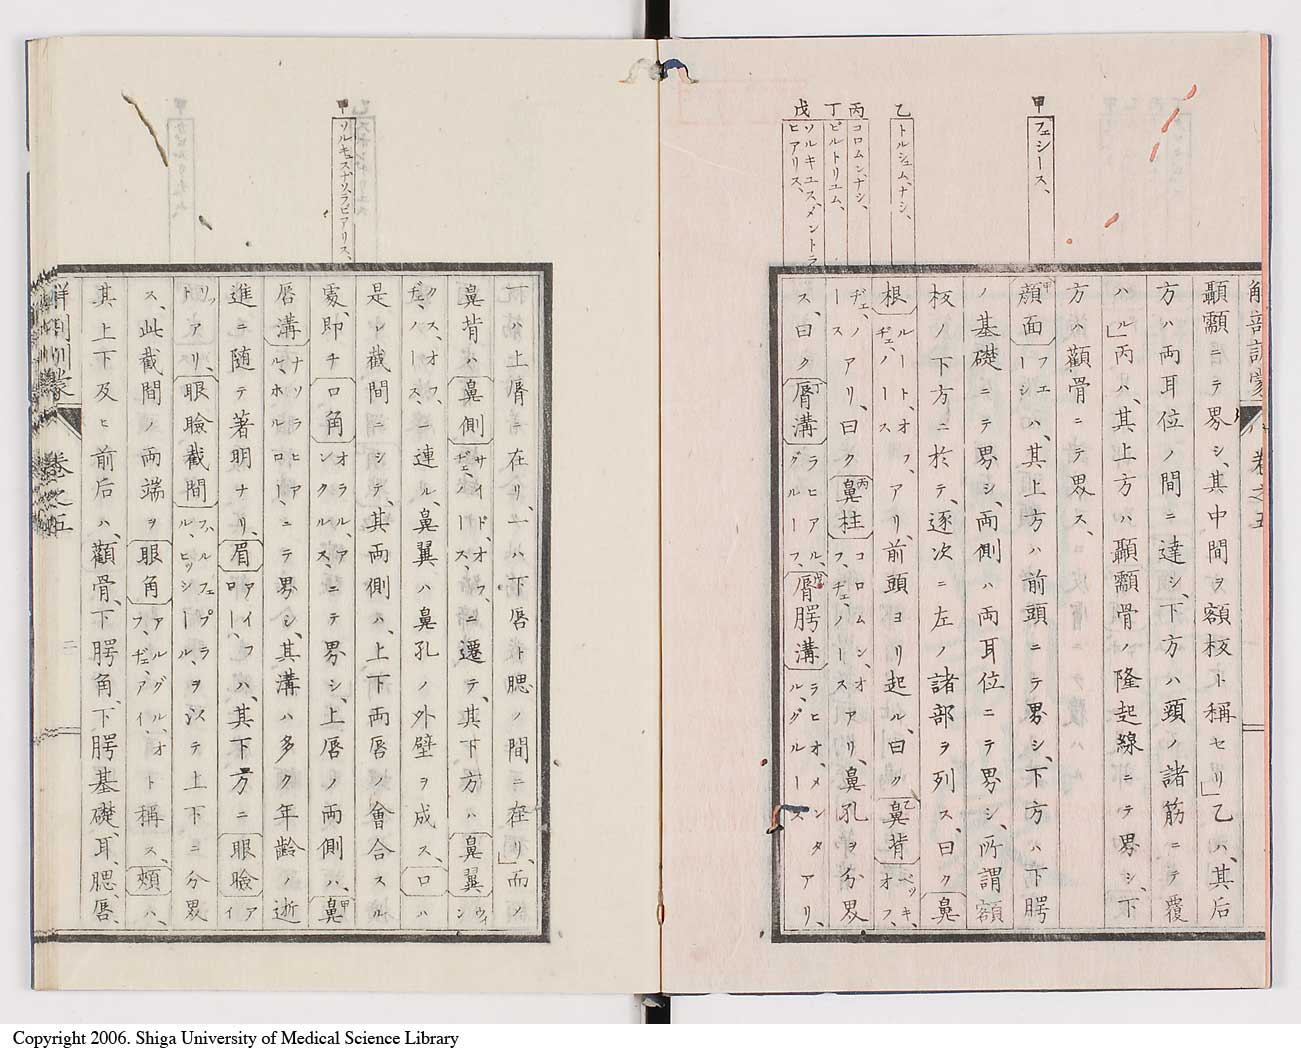 解剖訓蒙 卷之五
甲 フェシース、
乙 トルシュム、ナシ、
丙 コロムン、ナシ、
丁 ピルトリユム、
戊 ソルキユス、メントラ
ビアリス、
顳顬ニテ界シ、其中間ヲ額板ト稱セリ」乙ハ、其后
方ハ両耳位ノ間ニ達シ、下方ハ頸ノ諸筋ニテ覆
ハル」丙ハ、其上方ハ顳顬骨ノ隆起線ニテ界シ、下
方ハ顴骨ニテ界ス、
顔面甲フエーシハ、其上方ハ前頭ニテ界シ、下方ハ下腭
ノ基礎ニテ界シ、両側ハ両耳位ニテ界シ、所謂額
板ノ下方ニ於テ、逐次ニ左ノ諸部ヲ列ス、曰ク鼻
根ルート、オフ、ヂエ、ノースアリ、前頭ヨリ起ル、曰ク鼻背乙ベッキ、オフ、
ヂエ、ノースアリ、曰ク鼻柱丙コロムン、オフ、ヂエ、ノースアリ、鼻孔ヲ分界
ス、曰ク脣溝丁ラヒアル、グルーフ、脣腭溝戊ラヒオ、メンタル、グルースアリ、
甲 ソルキュスナソ、ラビアリス、
一ハ上脣ニ在リ、一ハ下唇ト腮ノ間ニ在リ」而ノ
鼻背ハ鼻側サイド、オフ、ヂエ、ノース、ニ遷テ、其下方ハ鼻翼ウィン
クス、オフ、ヂエ、ノース、ニ連ル、鼻翼ハ鼻孔ノ外壁ヲ成ス、口ハ
是レ截間ニシテ、其両側ハ、上下両唇ノ會合スル
處、即チ口角オラル、アンクルス、ニテ界シ、上唇ノ両側ハ、鼻甲
唇溝ナソラヒアル、ホルロー、ニテ界シ、其溝ハ多ク年齢ノ逝
進ニ随テ著明ナリ、眉アイブロー、ハ、其下方ニ眼瞼アイ
リッドアリ、眼瞼截間ファルフェブラル、ヒッシール、ヲ以テ上下ニ分界
ス、此截間ノ両端ヲ眼角アルグル、オフ、ヂエ、アイ、ト稱ス、頰ハ、
其上下及ヒ前后ハ、顴骨、下腭角、下腭基礎、耳、腮、唇、
卷之五
二
Copyright 2006. Shiga University of Medical Science Library